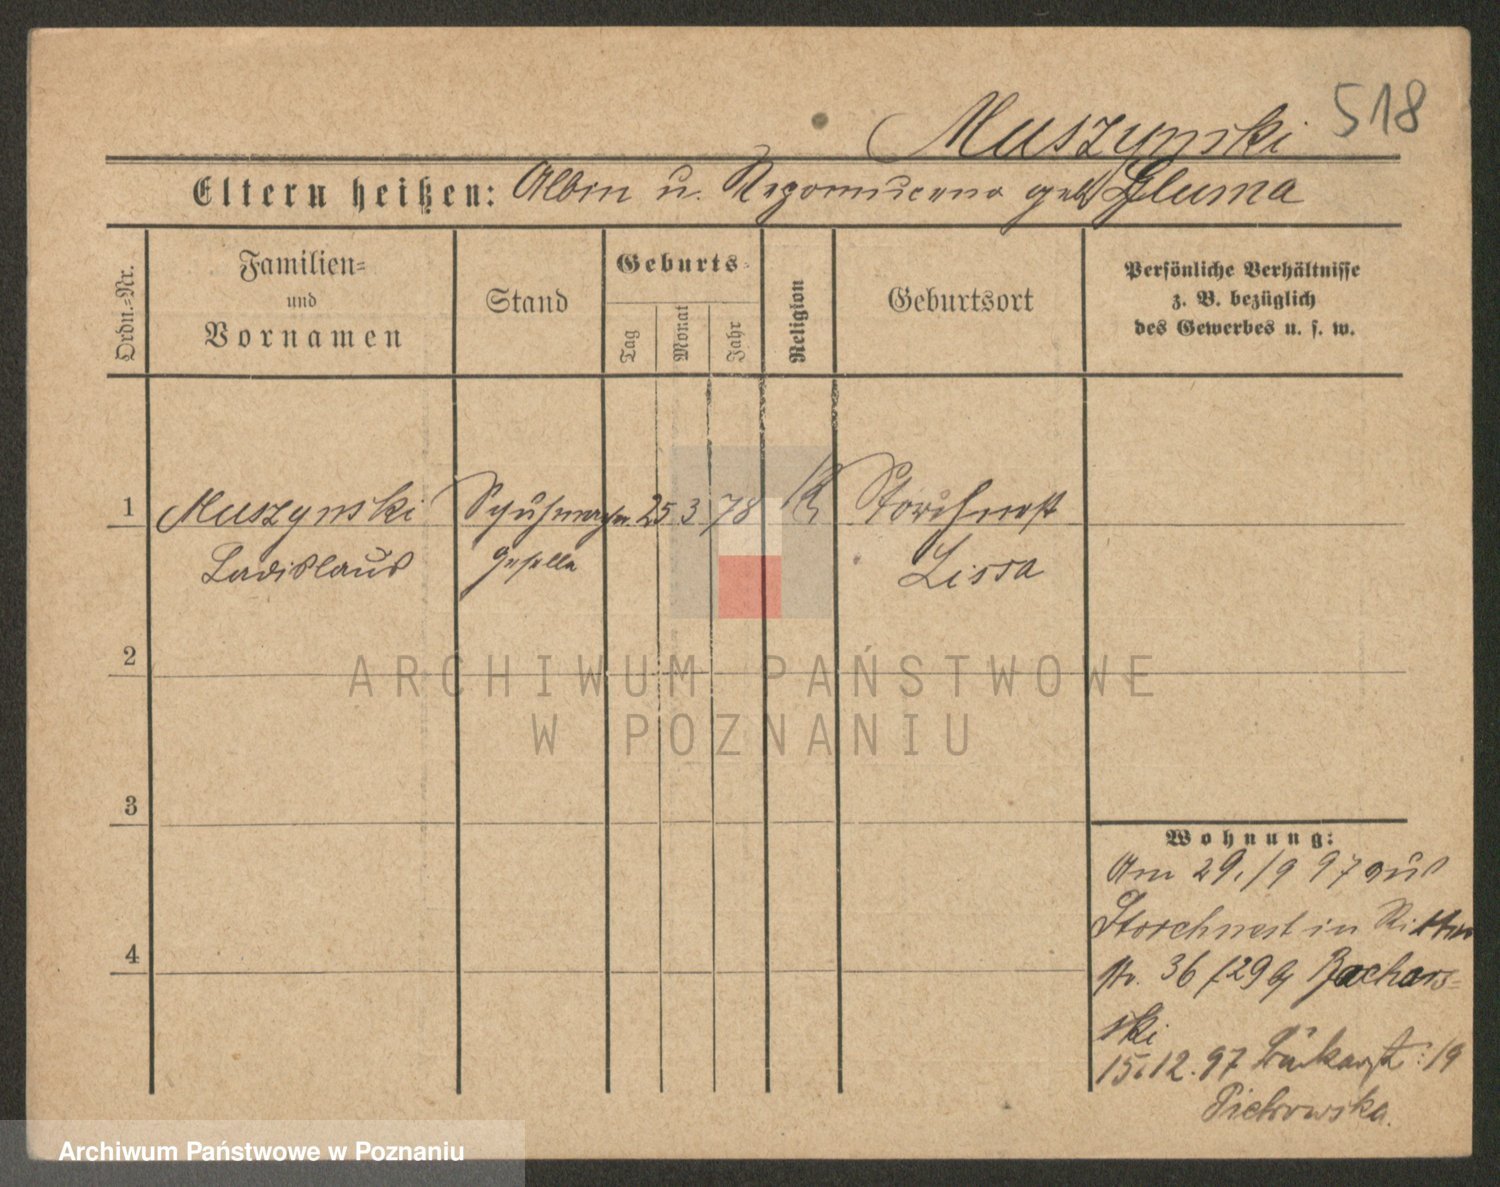 518
Muszynski
Eltern heißen: Albin u. Nepomucena geb Gluma
Ordn.=Nr.
Familien=
und
Vornamen
Stand
Geburts=
Tag
Monat
Jahr
Religion
Geburtsort
Persönliche Verhältnisse
z. B. bezüglich
des Gewerbes u. s. w.
1 Muszynski Schuhmacher 25 3 78 K Storchnest
Ladislaus Geselle Lissa
2
ARCHIWUM PAŃSTWOWE
W POZNANIU
3
4
Wohnung:
Am 29./9 97 aus
Storchnest in Ritter
str. 36 /29 9 Bachors=
ski
15.12.97 19
Piekrowska.
Archiwum Państwowe w Poznaniu